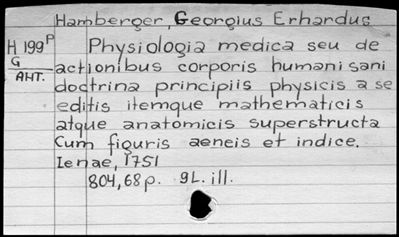 Hamberger, Georgius Erhardus
H 199 P Physiologia medica seu de
G actionibus corporis humani sani
АНТ. doctrina principiis physicis a se
editis itemque mathematicis
atque anatomicis superstructa
Cum figuris aeneis et indice.
Ienae, 1751
804,68 p. 9 L. ill.